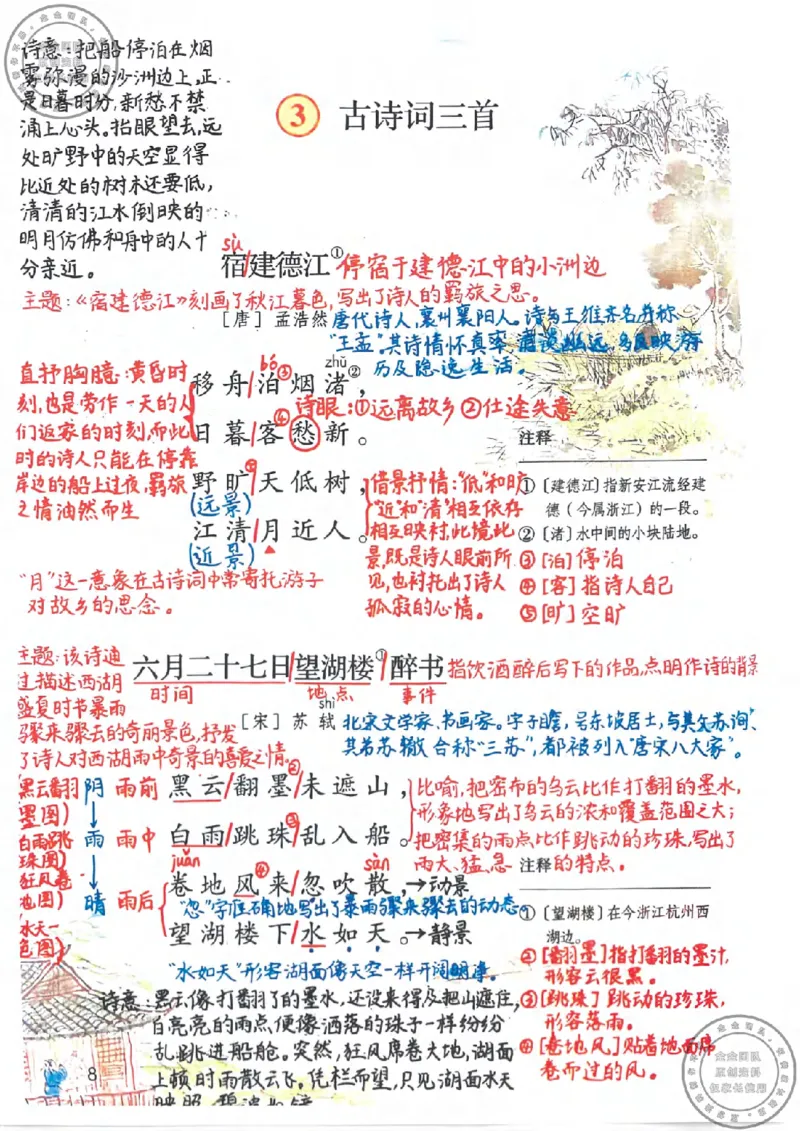 诗意:把船停泊在烟
雾弥漫的沙洲边上,正
是日暮时分,新愁不禁
涌上心头。抬眼望去,远
处旷野中的天空显得
比近处的树木还要低,
清清的江水倒映的
明月仿佛和舟中的人十
分亲近。
3 古诗词三首
sù
宿/建德江① 停宿于建德江中的小洲边
主题:《宿建德江》刻画了秋江暮色,写出了诗人的羁旅之思。
[唐] 孟浩然 唐代诗人,襄州襄阳人。诗与王维齐名并称
"王孟"。其诗情怀真率
历及隐逸生活。
直抒胸臆:黄昏时
刻,也是劳作一天的人
们返家的时刻,而此
时的诗人只能在停靠
岸边的船上过夜,羁旅
之情油然而生
bó③ zhǔ②
移舟/泊烟渚,
诗眼:①远离故乡 ②仕途失意
日暮/④客愁新。
野旷⑤/天低树,
(远景)
江清/月近人。
(近景)
借景抒情:"低"和旷
"近"和"清"相互依存
相互映衬,此境此
景,既是诗人眼前所
见,也衬托出了诗人
孤寂的心情。
"月"这一意象在古诗词中常寄托游子
对故乡的思念。
注释
① [建德江]指新安江流经建
德(今属浙江)的一段。
② [渚]水中间的小块陆地。
③ [泊]停泊
④ [客]指诗人自己
⑤ [旷]空旷
主题:该诗通
过描述西湖
盛夏时节暴雨
骤来骤去的奇丽景色,抒发
了诗人对西湖雨中奇景的喜爱之情。
六月二十七日/望湖楼①/醉书 指饮酒醉后写下的作品,点明作诗的背景
时间 地点 事件
shì
[宋] 苏轼 北宋文学家、书画家。字子瞻,号东坡居士,与其父苏洵、
其弟苏辙合称"三苏",都被列入"唐宋八大家"。
黑云翻
墨图)
白雨跳
珠图)
狂风卷
地图)
水天一
色图)
阴 雨前 黑云/翻墨②/未遮山,
雨 雨中 白雨/跳珠③/乱入船。
juǎn sàn
晴 雨后 卷地风④来/忽吹散,→动景
"忽"字准确地写出了暴雨骤来骤去的动态。
望湖楼下/水如天。→静景
"水如天"形容湖面像天空一样开阔明净。
比喻,把密布的乌云比作打翻的墨水,
形象地写出了乌云的浓和覆盖范围之大;
把密集的雨点比作跳动的珍珠,写出了
雨大、猛、急的特点。
注释
① [望湖楼]在今浙江杭州西
湖边。
② [翻墨]指打翻的墨汁,
形容云很黑。
③ [跳珠]跳动的珍珠,
形容落雨。
④ [卷地风]贴着地面席
卷而过的风。
诗意:黑云像打翻了的墨水,还没来得及把山遮住,
白亮亮的雨点,便像洒落的珠子一样纷纷
乱跳进船舱。突然,狂风席卷大地,湖面
上顿时雨散云飞。凭栏而望,只见湖面水天
8